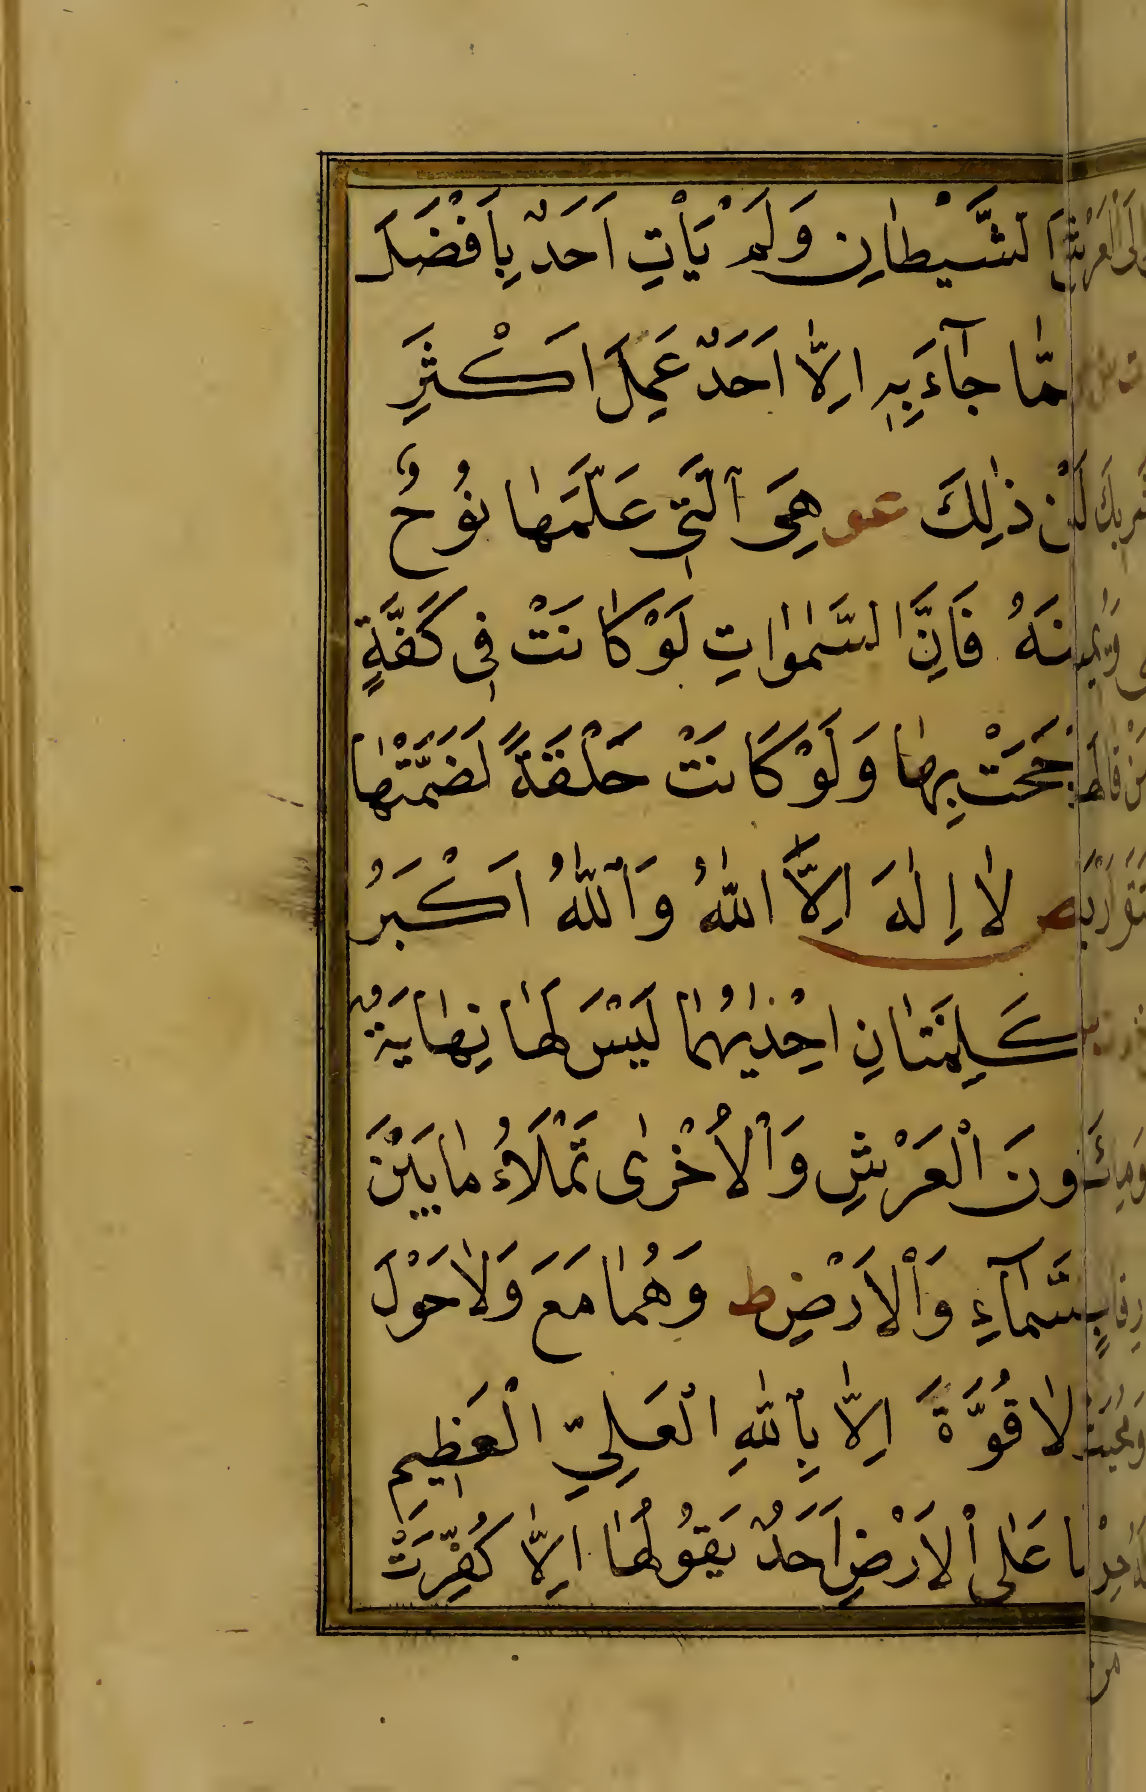 الشَّيْطٰانِ وَلَمْ يَأْتِ اَحَدٌ بِاَفْضَلَ
مّٰا جٰٓاءَ بِهٖ اِلّٰا اَحَدٌ عَمِلَ اَكْثَرَ
مِنْ ذٰلِكَ عو هِيَ الَّتٖي عَلَّمَهٰا نُوحٌ
ابْنَهُ فَاِنَّ السَّمٰوٰاتِ لَوْ كٰانَتْ فٖي كَفَّةٍ
لَرَجَحَتْ بِهٰا وَلَوْ كَانَتْ حَلْقَةً لَضَمَّتْهٰا
لٰا اِلٰهَ اِلَّا اللّٰهُ وَاللّٰهُ اَكْبَرُ
كَلِمَتٰانِ اِحْدٰيهُمٰا لَيْسَ لَهٰا نِهٰايَةٌ
دُونَ الْعَرْشِ وَالْاُخْرٰى تَمْلَاُ مٰا بَيْنَ
السَّمٰٓاءِ وَالْاَرْضِ ط وَهُمٰا مَعَ وَلٰا حَوْلَ
وَلٰا قُوَّةَ اِلّٰا بِاللّٰهِ الْعَلِيِّ الْعَظٖيمِ
مٰا عَلٰى الْاَرْضِ اَحَدٌ يَقُولُهٰا اِلّٰا كُفِّرَتْ